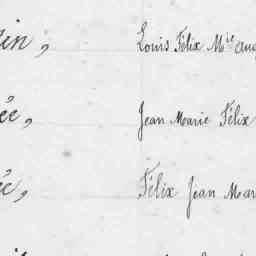 in, Louis Félix Mie Aug
ée, Jean Marie Félix
ée, Félix Jean Mar